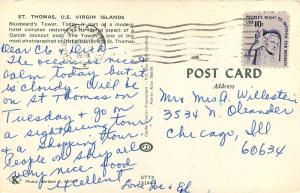 ST. THOMAS, U.S. VIRGIN ISLANDS
Bluebeard's Tower. Today it is part of a modern
hotel complex
Danish lookout post. The Tower is one of the
most
St. Thomas.
10c
Dear &
The ocean is nice
calm today but it
is cloudy. Will be
on St Thomas on
Tuesday & go on
a sightseeing tour
& a shopping tour.
People on ship all
very nice food
excellent
Love & Ed
POST CARD
Address
Mr & Mrs A. Willstein
3534 N. Oleander
Chicago, Ill
60634
ST72